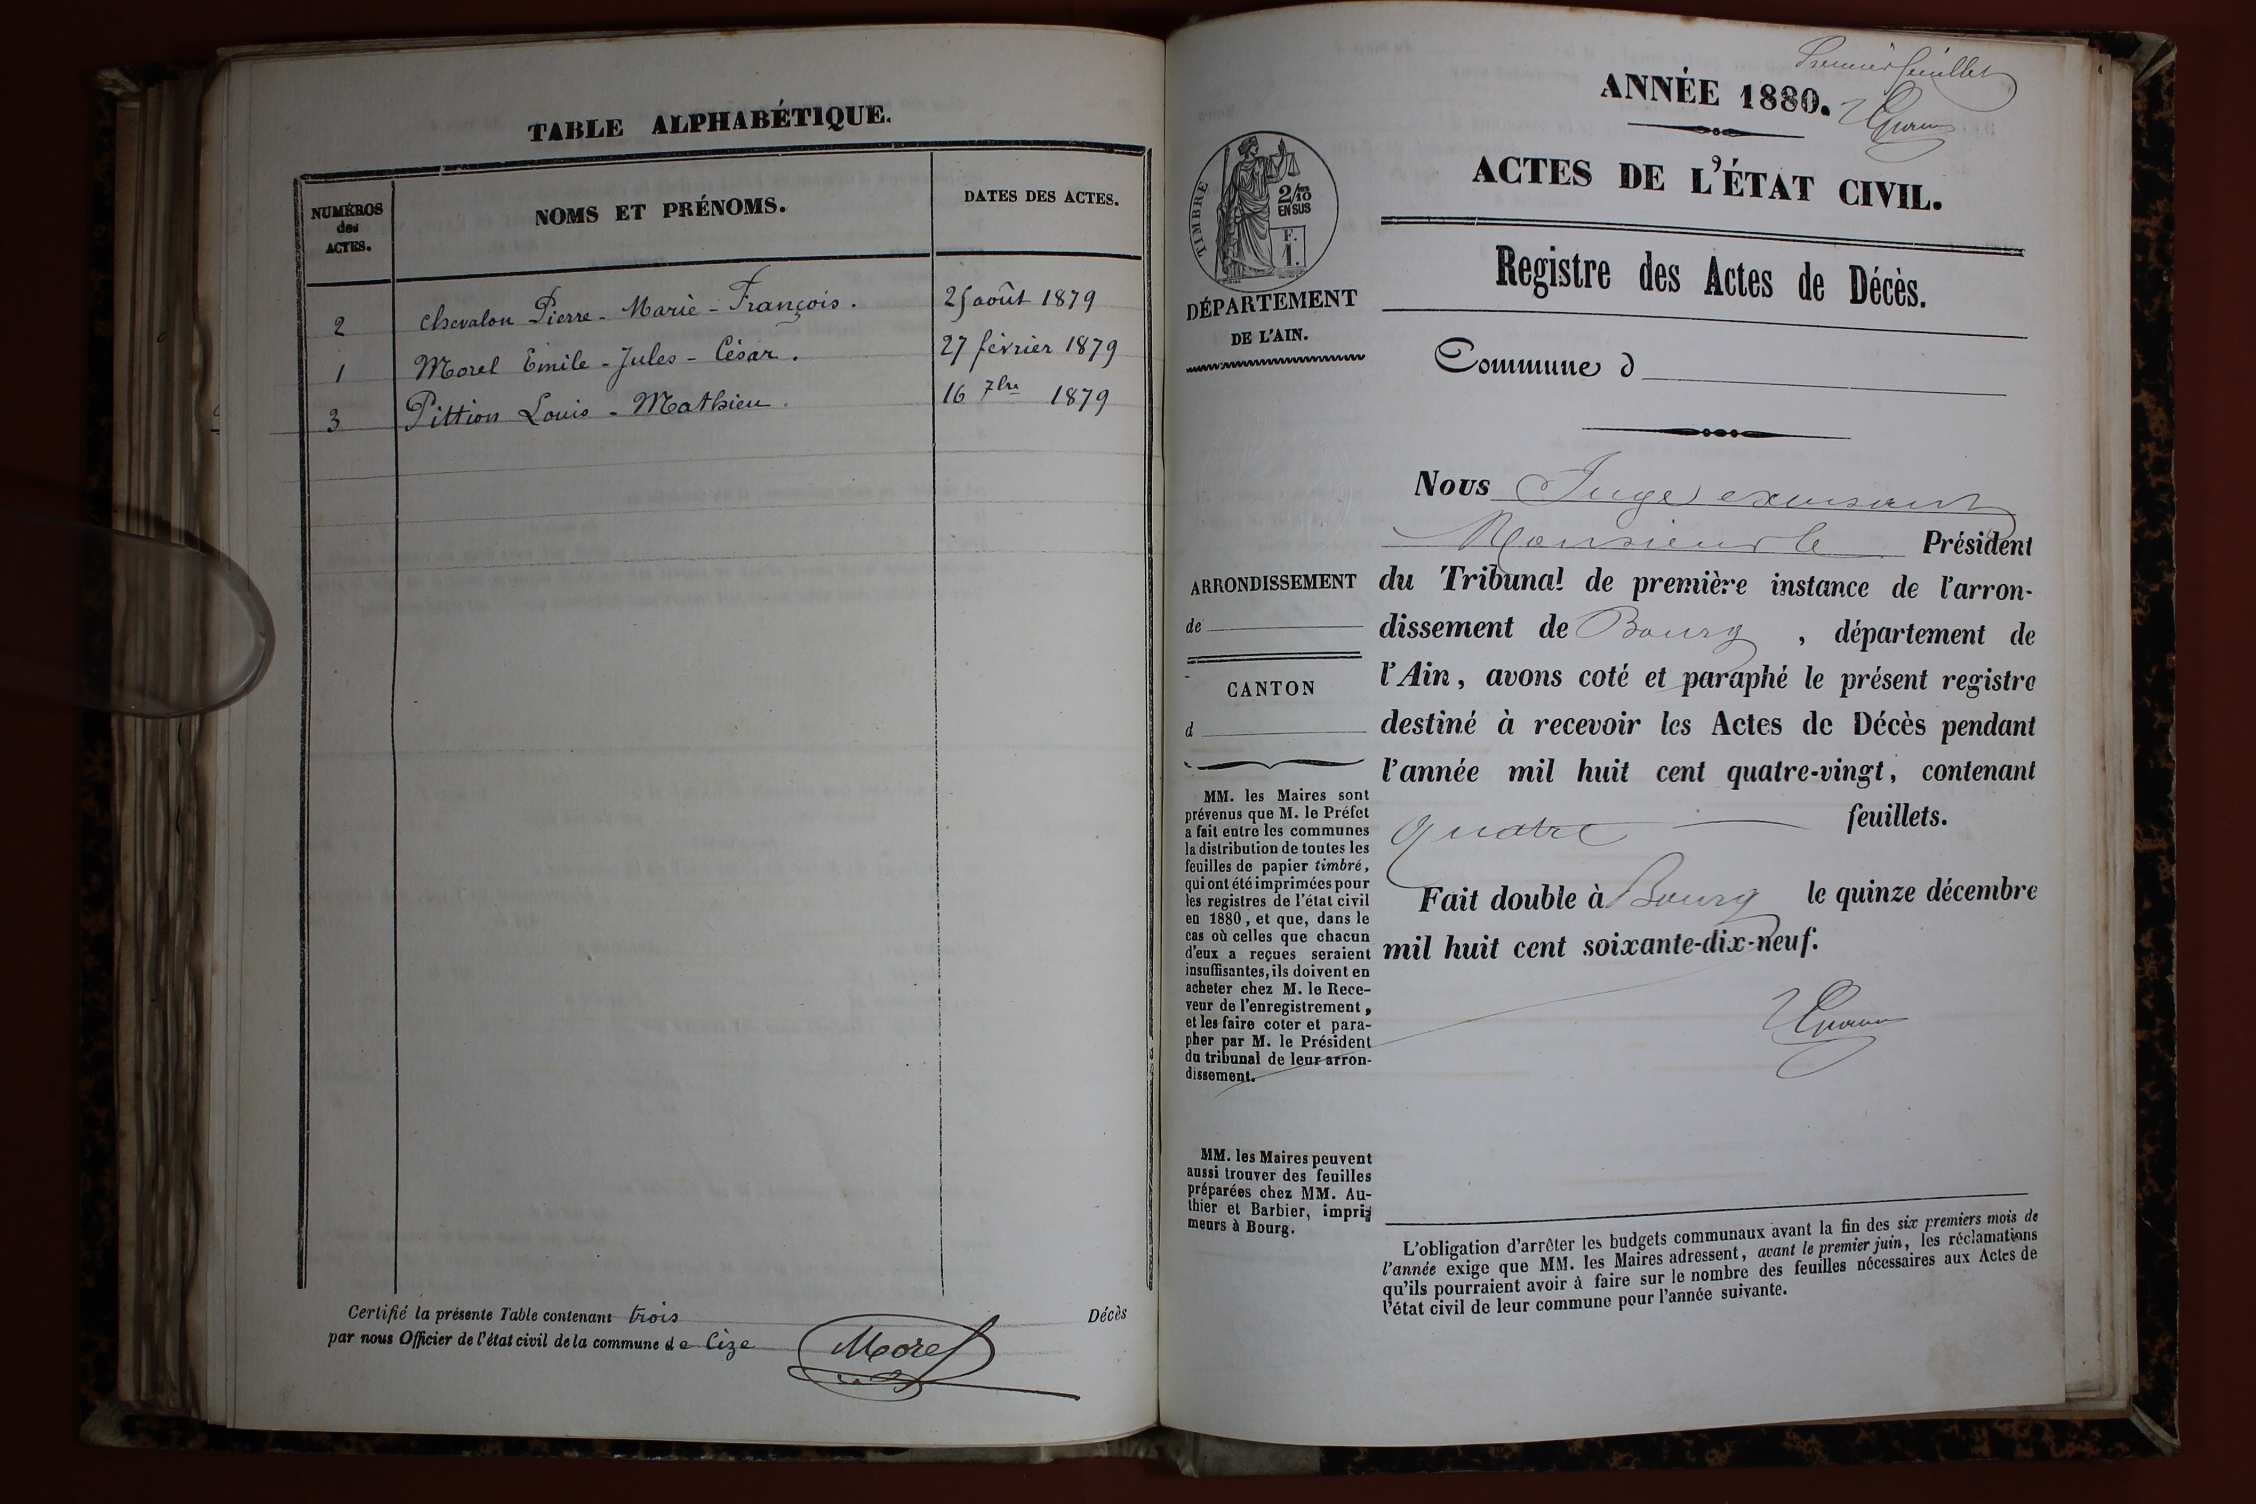 TABLE ALPHABÉTIQUE.
NUMÉROS
des
ACTES.
NOMS ET PRÉNOMS.
DATES DES ACTES.
2 Chevalon Pierre - Marie - François. 25 août 1879
1 Morel Emile - Jules - César. 27 février 1879
3 Pittion Louis - Mathieu. 16 7bre 1879
Certifié la présente Table contenant trois Décès
par nous Officier de l'état civil de la commune de Cize
Morel
Premier feuillet
ANNÉE 1880.
ACTES DE L'ÉTAT CIVIL.
TIMBRE
2/10
EN SUS
F.
1.
DÉPARTEMENT
DE L'AIN.
Registre des Actes de Décès.
Commune d
Nous Juge excusant
Monsieur le Président
ARRONDISSEMENT
de
CANTON
d
du Tribunal de première instance de l'arron-
dissement de Bourg, département de
l'Ain, avons coté et paraphé le présent registre
destiné à recevoir les Actes de Décès pendant
l'année mil huit cent quatre-vingt, contenant
quatre feuillets.
Fait double à Bourg le quinze décembre
mil huit cent soixante-dix-neuf.
MM. les Maires sont
prévenus que M. le Préfet
a fait entre les communes
la distribution de toutes les
feuilles de papier timbré,
qui ont été imprimées pour
les registres de l'état civil
en 1880, et que, dans le
cas où celles que chacun
d'eux a reçues seraient
insuffisantes, ils doivent en
acheter chez M. le Rece-
veur de l'enregistrement,
et les faire coter et para-
pher par M. le Président
du tribunal de leur arron-
dissement.
MM. les Maires peuvent
aussi trouver des feuilles
préparées chez MM. Au-
thier et Barbier, impri-
meurs à Bourg.
L'obligation d'arrêter les budgets communaux avant la fin des six premiers mois de
l'année exige que MM. les Maires adressent, avant le premier juin, les réclamations
qu'ils pourraient avoir à faire sur le nombre des feuilles nécessaires aux Actes de
l'état civil de leur commune pour l'année suivante.